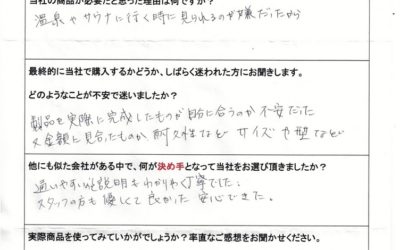 当社の商品が必要だと思った理由は何ですか？
温泉やサウナに行く時に見られるのが嫌だったから
最終的に当社で購入するかどうか、しばらく迷われた方にお聞きします。
どのようなことが不安で迷いましたか？
製品を実際に完成したものが自分に合うのか不安だった
又金額に見合ったものか、耐久性など サイズや型など
他にも似た会社がある中で、何が決め手となって当社をお選び頂きましたか？
通いやすいと説明もわかりやすく丁寧でした。
スタッフの方も優しくて良かった 安心できた。
実際商品を使ってみていかがでしょうか？率直なご感想をお聞かせください。